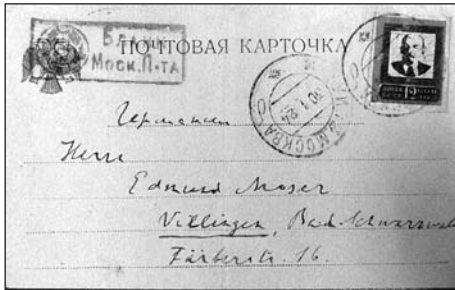 Бланк
Моск. П-та
ПОЧТОВАЯ КАРТОЧКА
30.1.24
МОСКВА
12
Германия
Herrn
Edmund Moser
Villingen, Bad. Schwarzwald
Färberstr. 16.